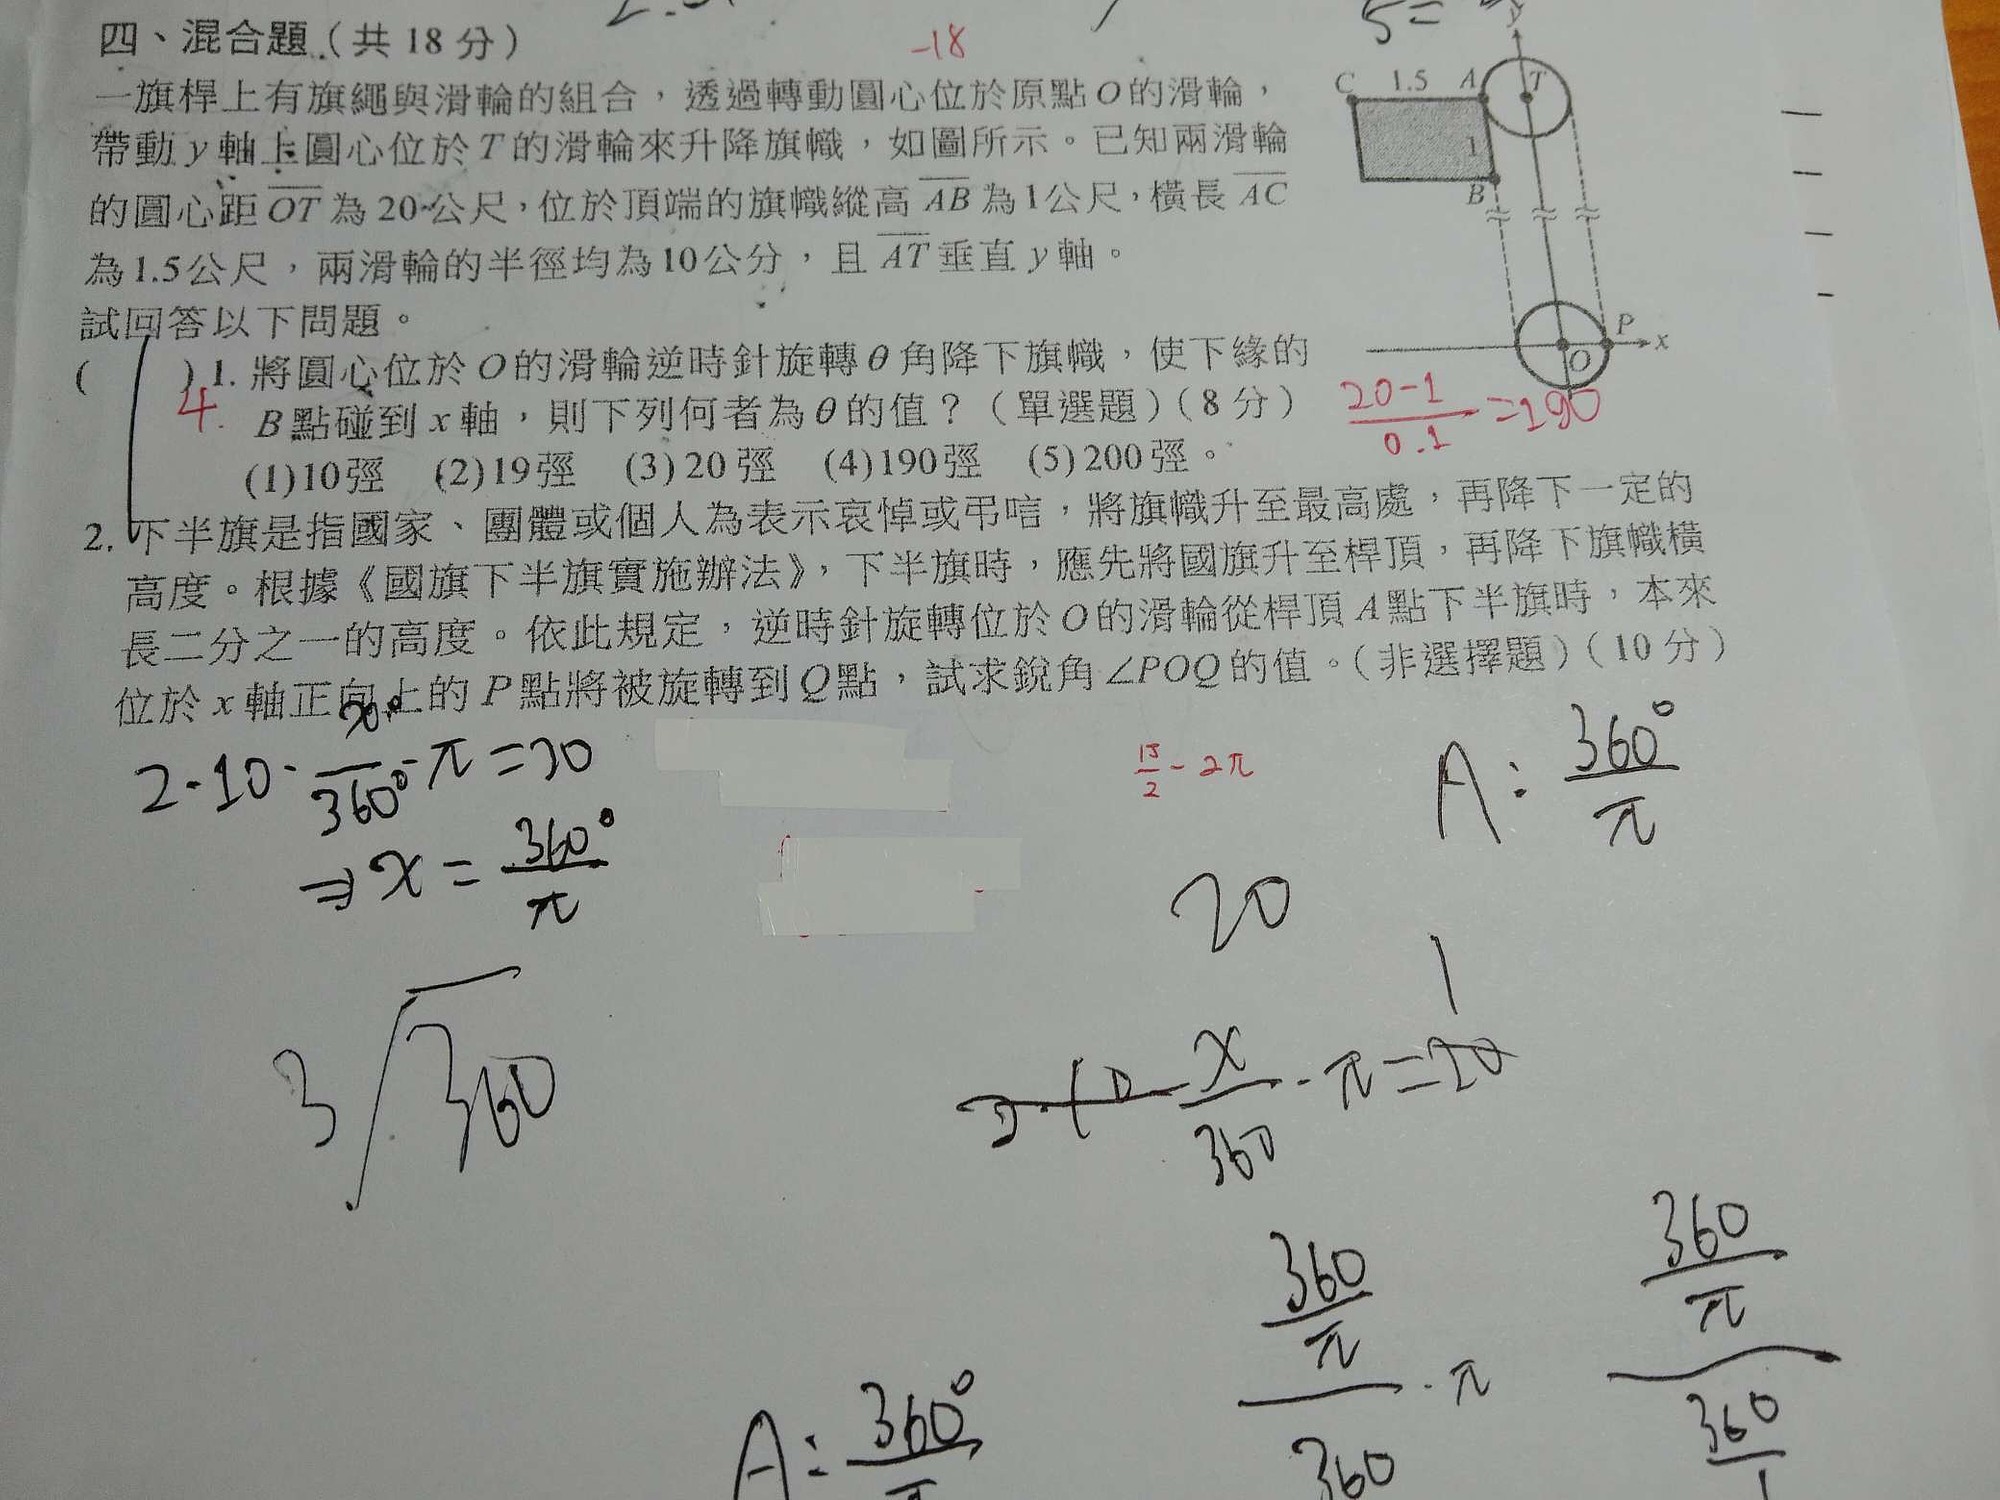 四、混合題(共 18 分)
-18
一旗桿上有旗繩與滑輪的組合，透過轉動圓心位於原點O的滑輪，
帶動y軸上圓心位於T的滑輪來升降旗幟，如圖所示。已知兩滑輪
的圓心距OT為20公尺，位於頂端的旗幟縱高AB為1公尺，橫長AC
為1.5公尺，兩滑輪的半徑均為10公分，且AT垂直y軸。
試回答以下問題。
5=
y
C 1.5 A T
1
B
P
x
O
( )1. 將圓心位於O的滑輪逆時針旋轉θ角降下旗幟，使下緣的
4.
B點碰到x軸，則下列何者為θ的值？(單選題)(8分)
(1)10弳 (2)19弳 (3)20弳 (4)190弳 (5)200弳。
20-1/0.1=190
2. 下半旗是指國家、團體或個人為表示哀悼或弔唁，將旗幟升至最高處，再降下一定的
高度。根據《國旗下半旗實施辦法》，下半旗時，應先將國旗升至桿頂，再降下旗幟橫
長二分之一的高度。依此規定，逆時針旋轉位於O的滑輪從桿頂A點下半旗時，本來
位於x軸正向上的P點將被旋轉到Q點，試求銳角∠POQ的值。(非選擇題)(10分)
2·10·x°/360°·π=20
⇒x=360°/π
15/2-2π
A:360°/π
20
3√360
x/360·π=
1
360/π
360
·π
360/π
360/1
A:360°/π